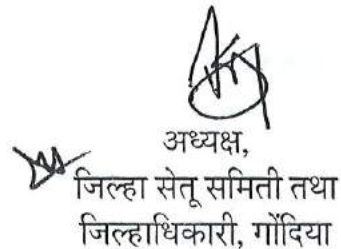 अध्यक्ष,
जिल्हा सेतू समिती तथा
जिल्हाधिकारी, गोंदिया